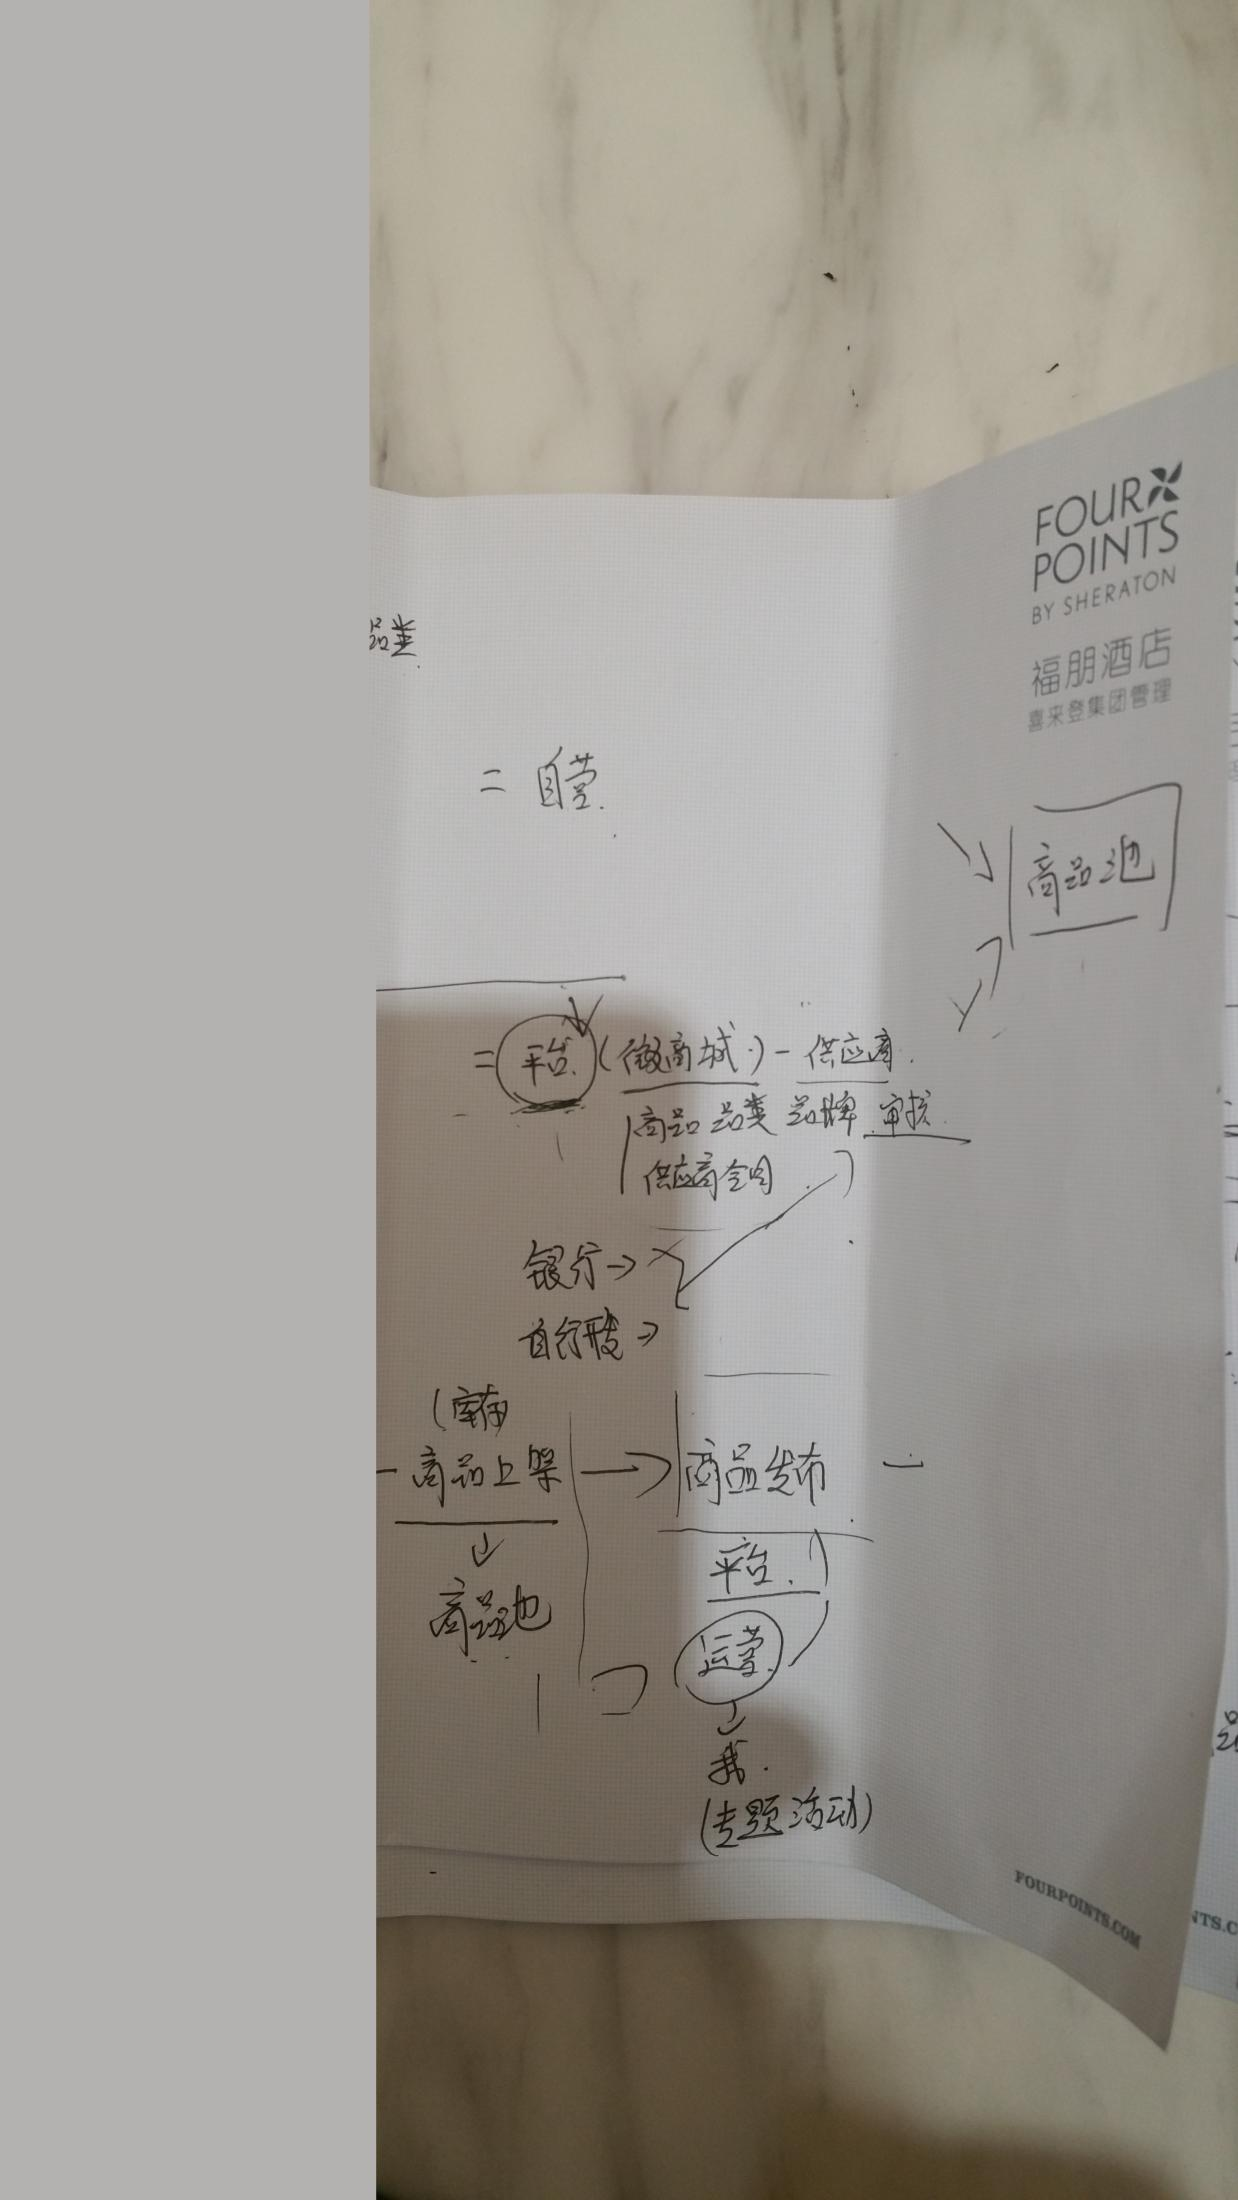 FOUR
POINTS
BY SHERATON
福朋酒店
喜来登集团管理
品类
= 自营
商品池
= 平台 (微商城) - 供应商
商品 品类 品牌 审核
供应商合同
银行→
自行开发→
(库存)
- 商品上架 → 商品发布 -
商品池
平台
运营
我
(专题活动)
FOURPOINTS.COM
NTS.C